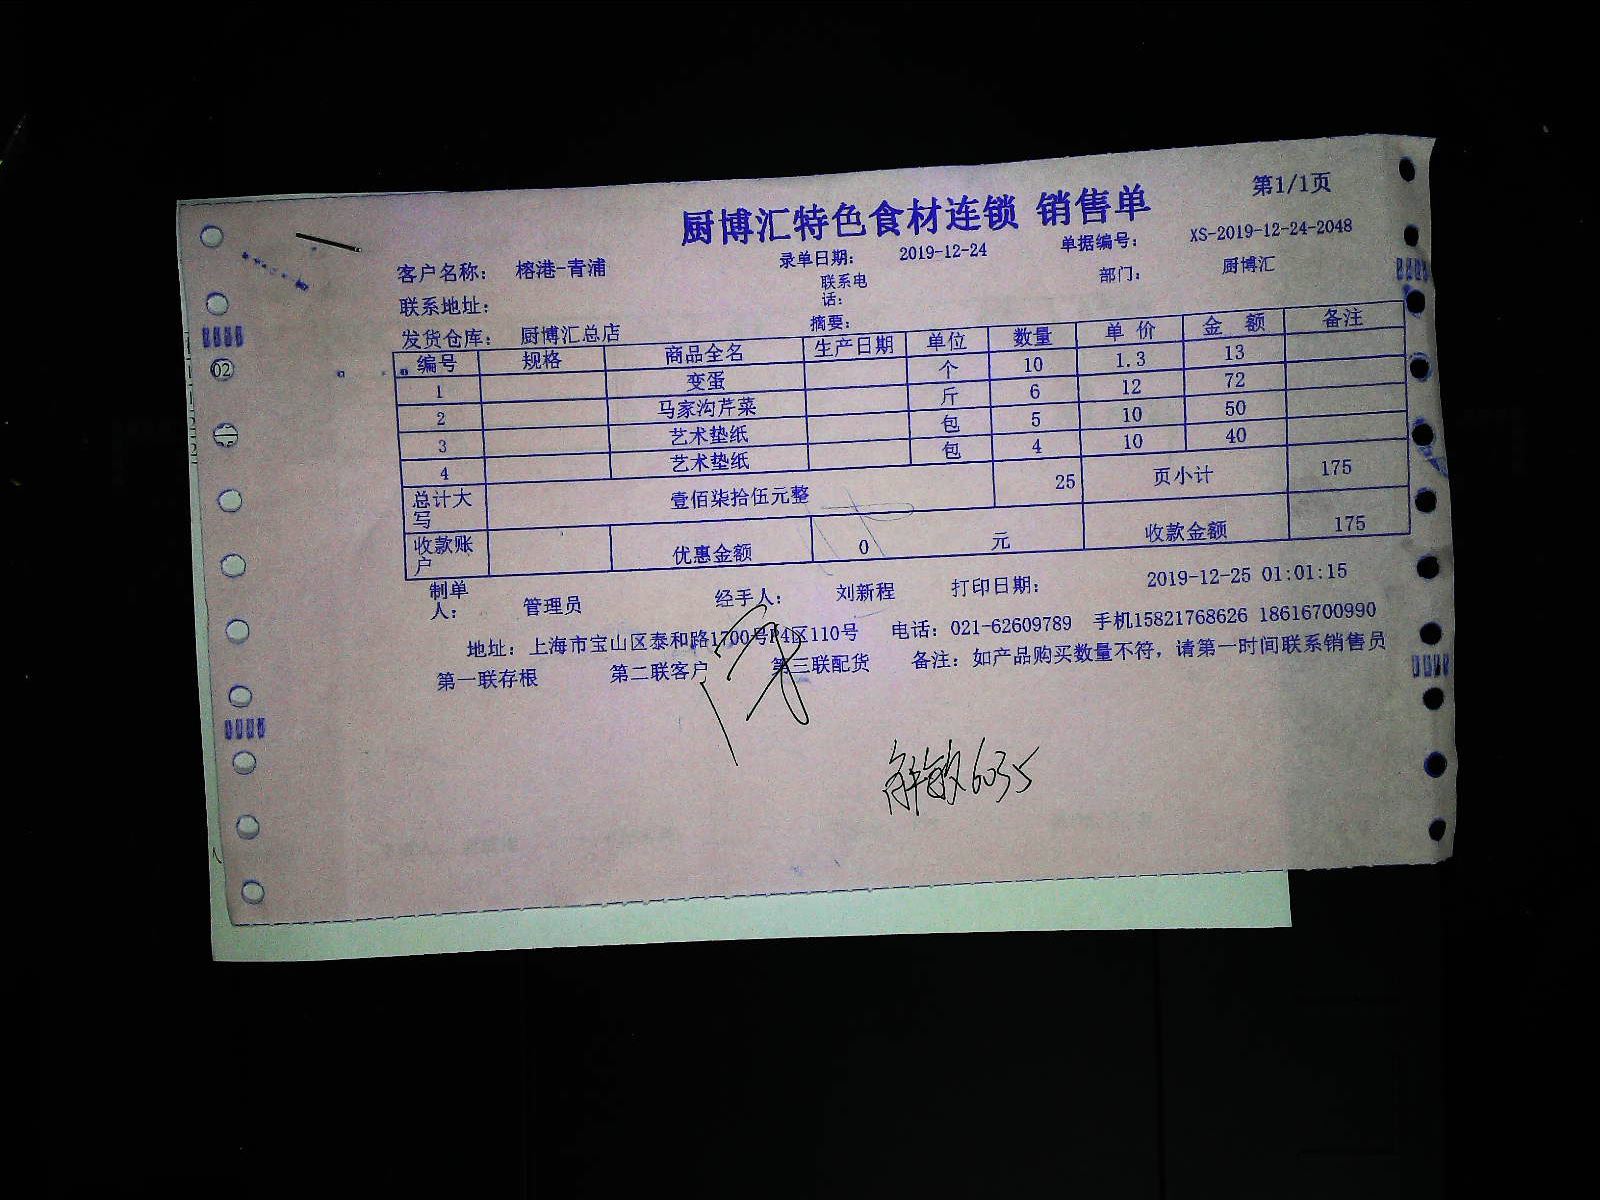 第1/1页
厨博汇特色食材连锁 销售单
客户名称： 榕港-青浦 录单日期： 2019-12-24 单据编号： XS-2019-12-24-2048
联系地址： 联系电话： 部门： 厨博汇
发货仓库： 厨博汇总店 摘要：
编号 规格 商品全名 生产日期 单位 数量 单价 金额 备注
1 变蛋 个 10 1.3 13
2 马家沟芹菜 斤 6 12 72
3 艺术垫纸 包 5 10 50
4 艺术垫纸 包 4 10 40
总计大写 壹佰柒拾伍元整 25 页小计 175
收款账户 优惠金额 0 元 收款金额 175
制单人： 管理员 经手人： 刘新程 打印日期： 2019-12-25 01:01:15
地址：上海市宝山区泰和路1700号P4区110号 电话：021-62609789 手机15821768626 18616700990
第一联存根 第二联客户 第三联配货 备注：如产品购买数量不符，请第一时间联系销售员
6035
02